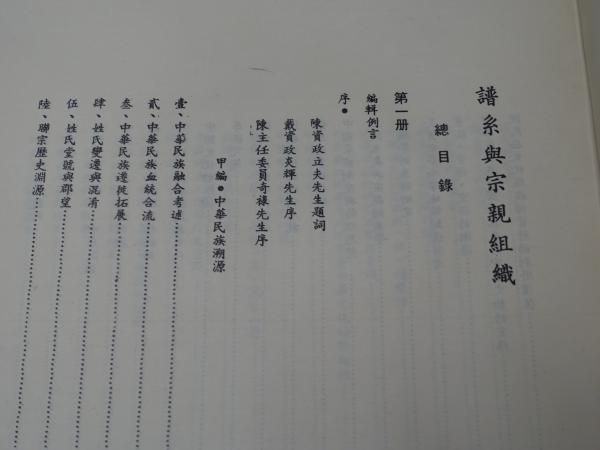 譜系與宗親組織
總目錄
第一册
編輯例言
序●
陳資政立夫先生題詞
戴資政炎輝先生序
陳主任委員奇祿先生序
甲編●中華民族溯源
壹、中華民族融合考述
貳、中華民族血統合流
叁、中華民族遷徙拓展
肆、姓氏變遷與混肴
伍、姓氏堂號與郡望
陸、聯宗歷史淵源